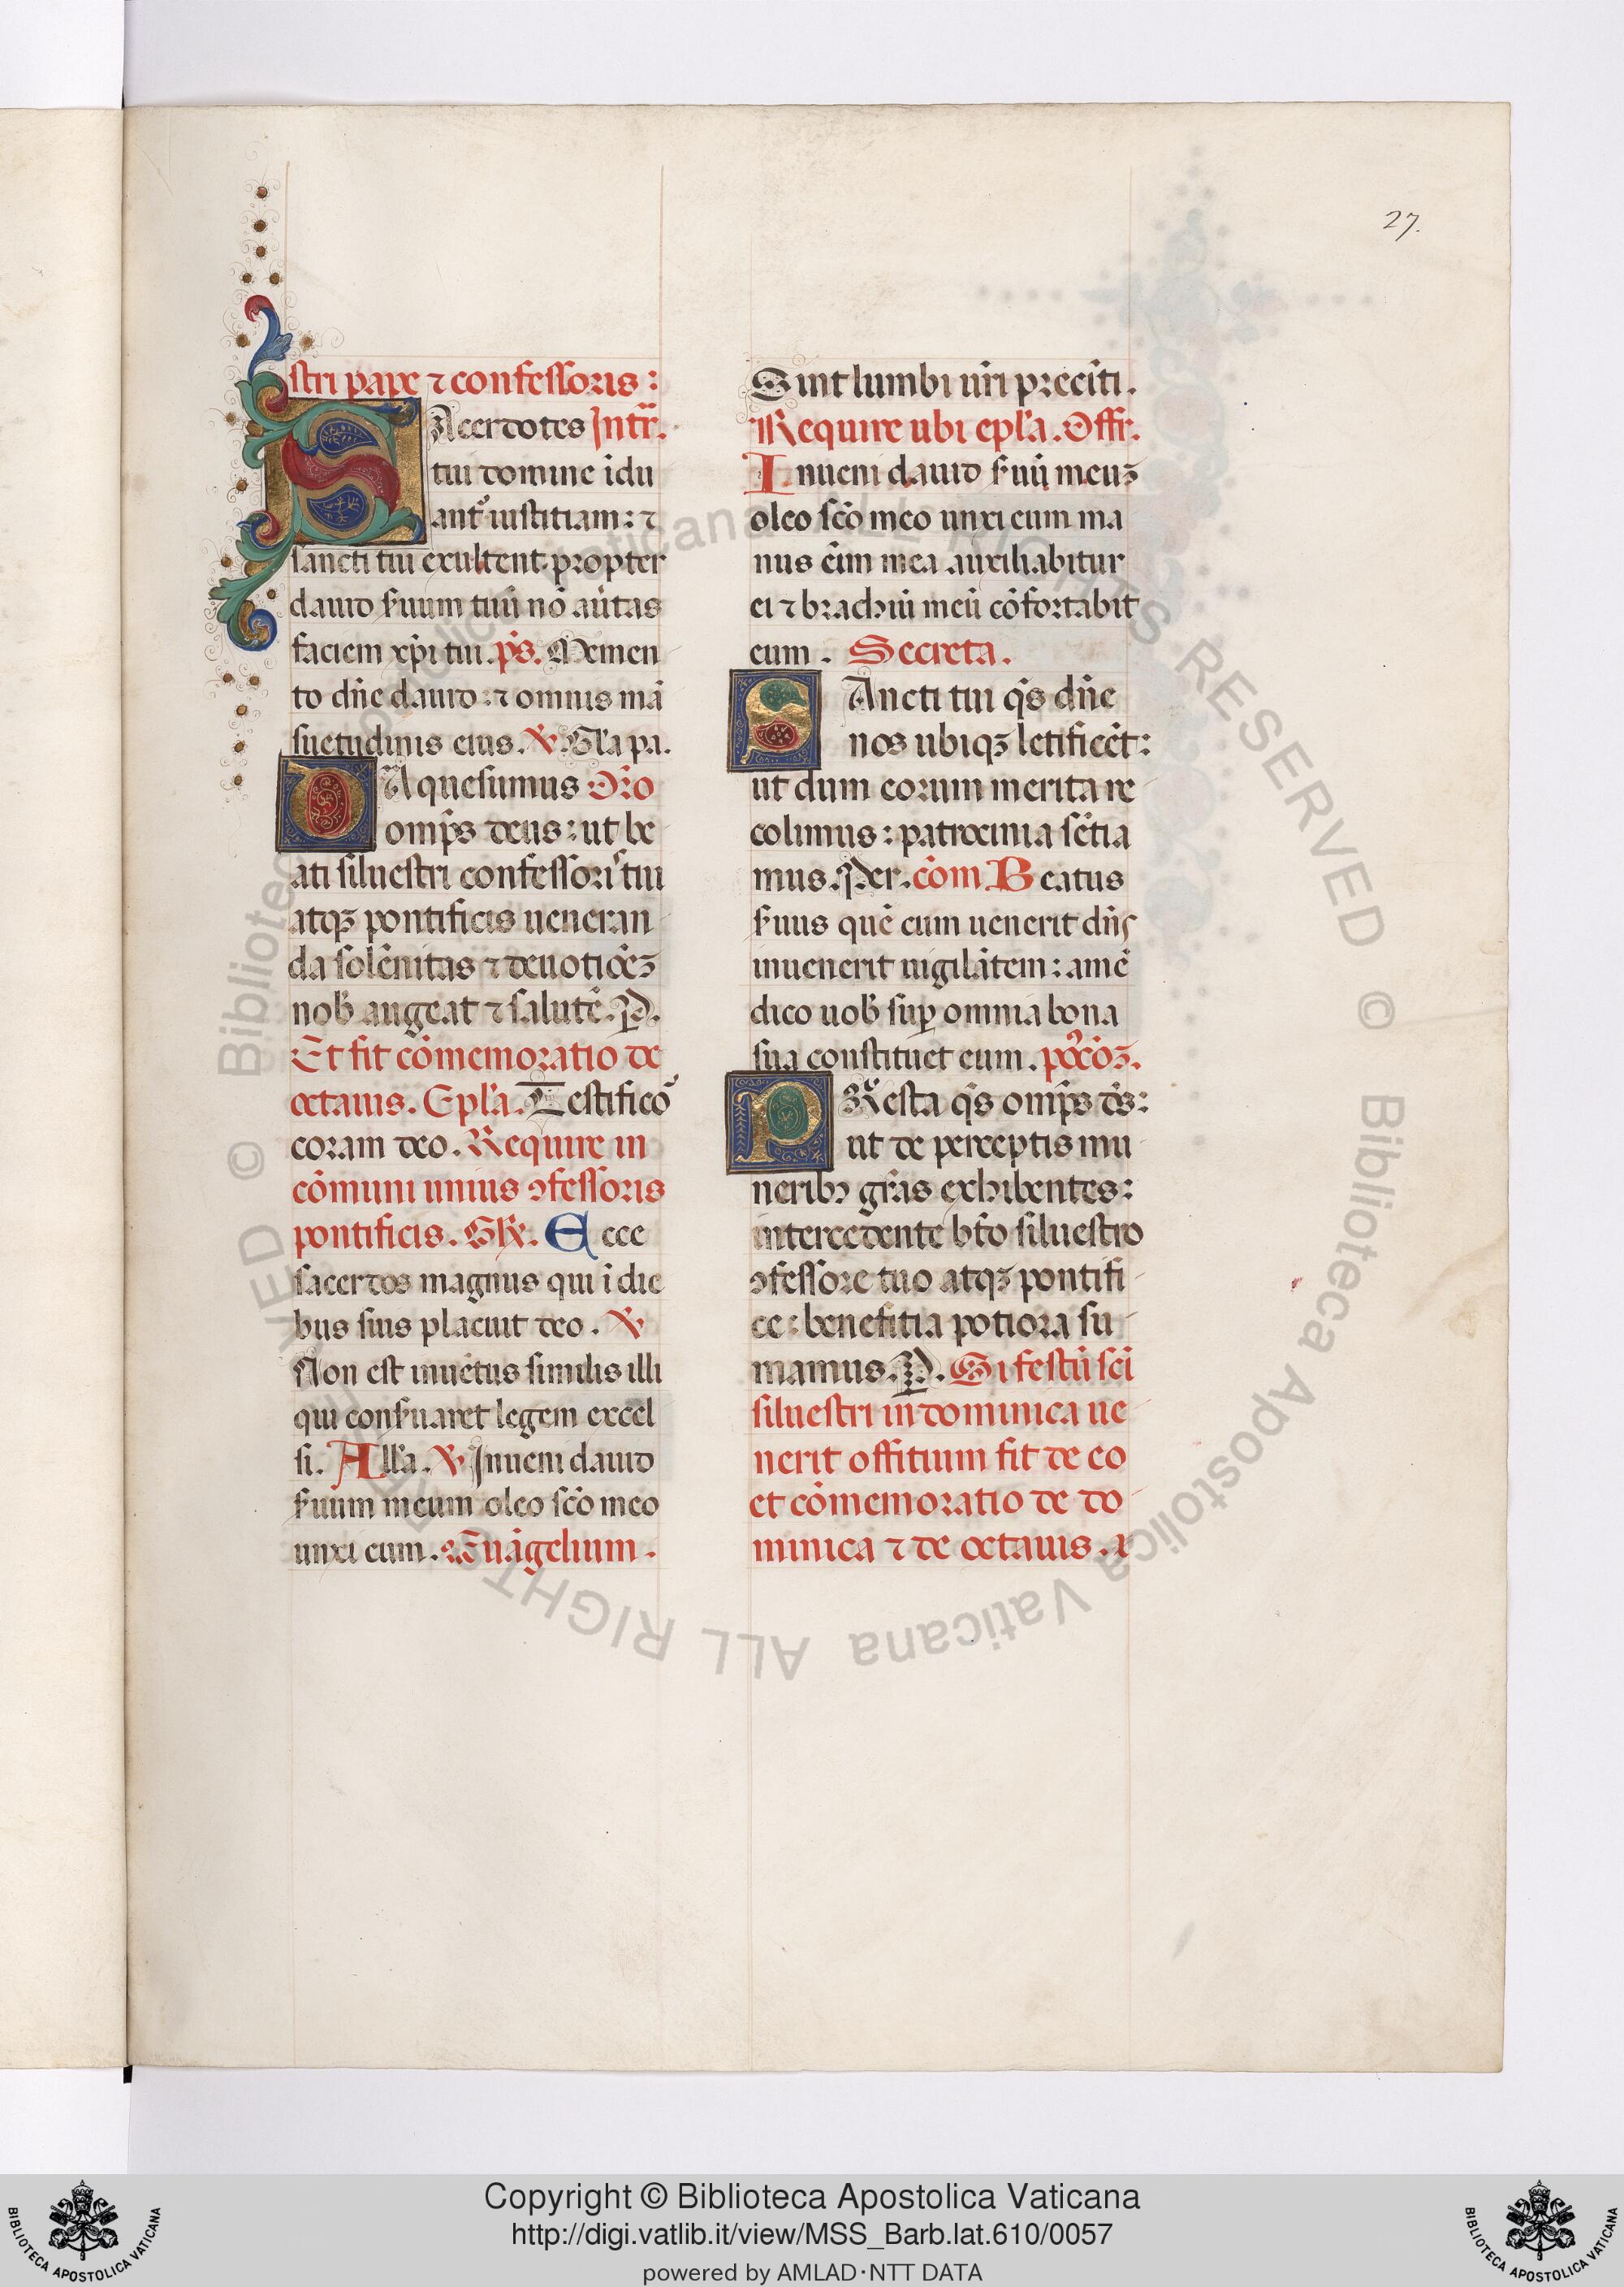 27.
stri pape ⁊ confessoris:
SAcerdotes Intr̄.
tui domine īdu
ant᷑ iustitiam: ⁊
sancti tui exultent. propter
dauid s̄uum tuū nō aūtas
faciem xp̄i tui. p̄s. Memen
to dn̄e dauid: ⁊ omnis mā
suetudinis eius. ℣. Gl̄a pa.
DA quesumus Or̄o
omp̄s deus: ut be
ati siluestri confessorꝭ tui
atqꝫ pontificis ueneran
da solēnitas ⁊ deuotiōeꝫ
nob̄ augeat ⁊ salutē. P.
Et fit cōmemoratio de
octauis. Epl̄a. Testificor᷑
coram deo. Require in
cōmuni unius ꝯfessoris
pontificis. Gr̄. Ecce
sacerdos magnus qui ī die
bus suis placuit deo. ℣
Non est inuētus similis illi
qui cons̄uaret legem excel
si. All̄a. ℣ Inueni dauid
s̄uum meum oleo sc̄o meo
unxi eum. Euāgelium.
Sint lumbi ur̄i precīti.
Require ubi epl̄a. Offr̄.
Inueni dauid s̄uū meuꝫ
oleo sc̄o meo unxi eum ma
nus ēim mea auxiliabitur
ei ⁊ brachiū meū cōfortabit
eum. Secreta.
SAncti tui q̄s dn̄e
nos ubiqꝫ letificēt:
ut dum eorum merita re
colimus: patrocinia sētia
mus. Per. cōm Beatus
s̄uus quē cum uenerit dn̄s
inuenerit uigilātem: amē
dico uob̄ sup̱ omnia bona
sua constituet eum. pocōꝫ.
PResta q̄s omp̄s d̄s:
ut de perceptis mu
neribꝫ gr̄as exhibentes:
intercedente bt̄o siluestro
ꝯfessore tuo atqꝫ pontifi
ce: benefitia potiora su
mamus. P. Si festū sc̄i
siluestri in dominica ue
nerit offitium fit de eo
et cōmemoratio de do
minica ⁊ de octauis.
Copyright © Biblioteca Apostolica Vaticana
http://digi.vatlib.it/view/MSS_Barb.lat.610/0057
powered by AMLAD·NTT DATA
BIBLIOTECA APOSTOLICA VATICANA
BIBLIOTECA APOSTOLICA VATICANA
© Biblioteca Apostolica Vaticana ALL RIGHTS RESERVED
© Biblioteca Apostolica Vaticana ALL RIGHTS RESERVED